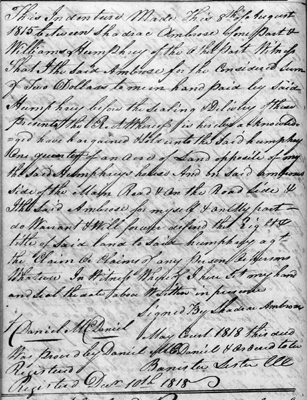 This Indenture Made This 8th of August
1815 between Shadrac Ambrose of one Part &
William Humphrey of the other Part Witness
That I the Said Ambrose for the Considered Sum
of Two Dollars to me in hand Paid by Said
Humphrey before the Sealing & Delivery of these
presents the Rect Whereof is hereby acknowledg
and have bargained & Sold unto the Said humphrey
One quarter of an acre of Land opposite of
the Said Humphreys house And on Said Ambrose
Side of the Main Road & on the Road Side &
I the Said Ambrose for myself & my part
do Warrant & Will forever defend the Right &
title of Said land to Said humphrey agt
the Claim or Claims of any Person or Persons
Whatever In Witness Whereof I have Set my hand
and Seal the date above Written in presence
Signed By Shadrac Ambrose
Daniel McDaniel
May Court 1818 This deed
Was proved by Daniel McDaniel & ordered to be
Registered
Banister Lester CC
Registered Decr 10th 1818